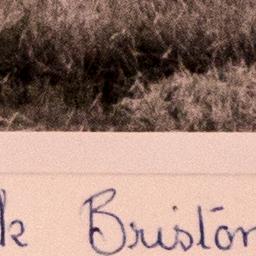 k Briston